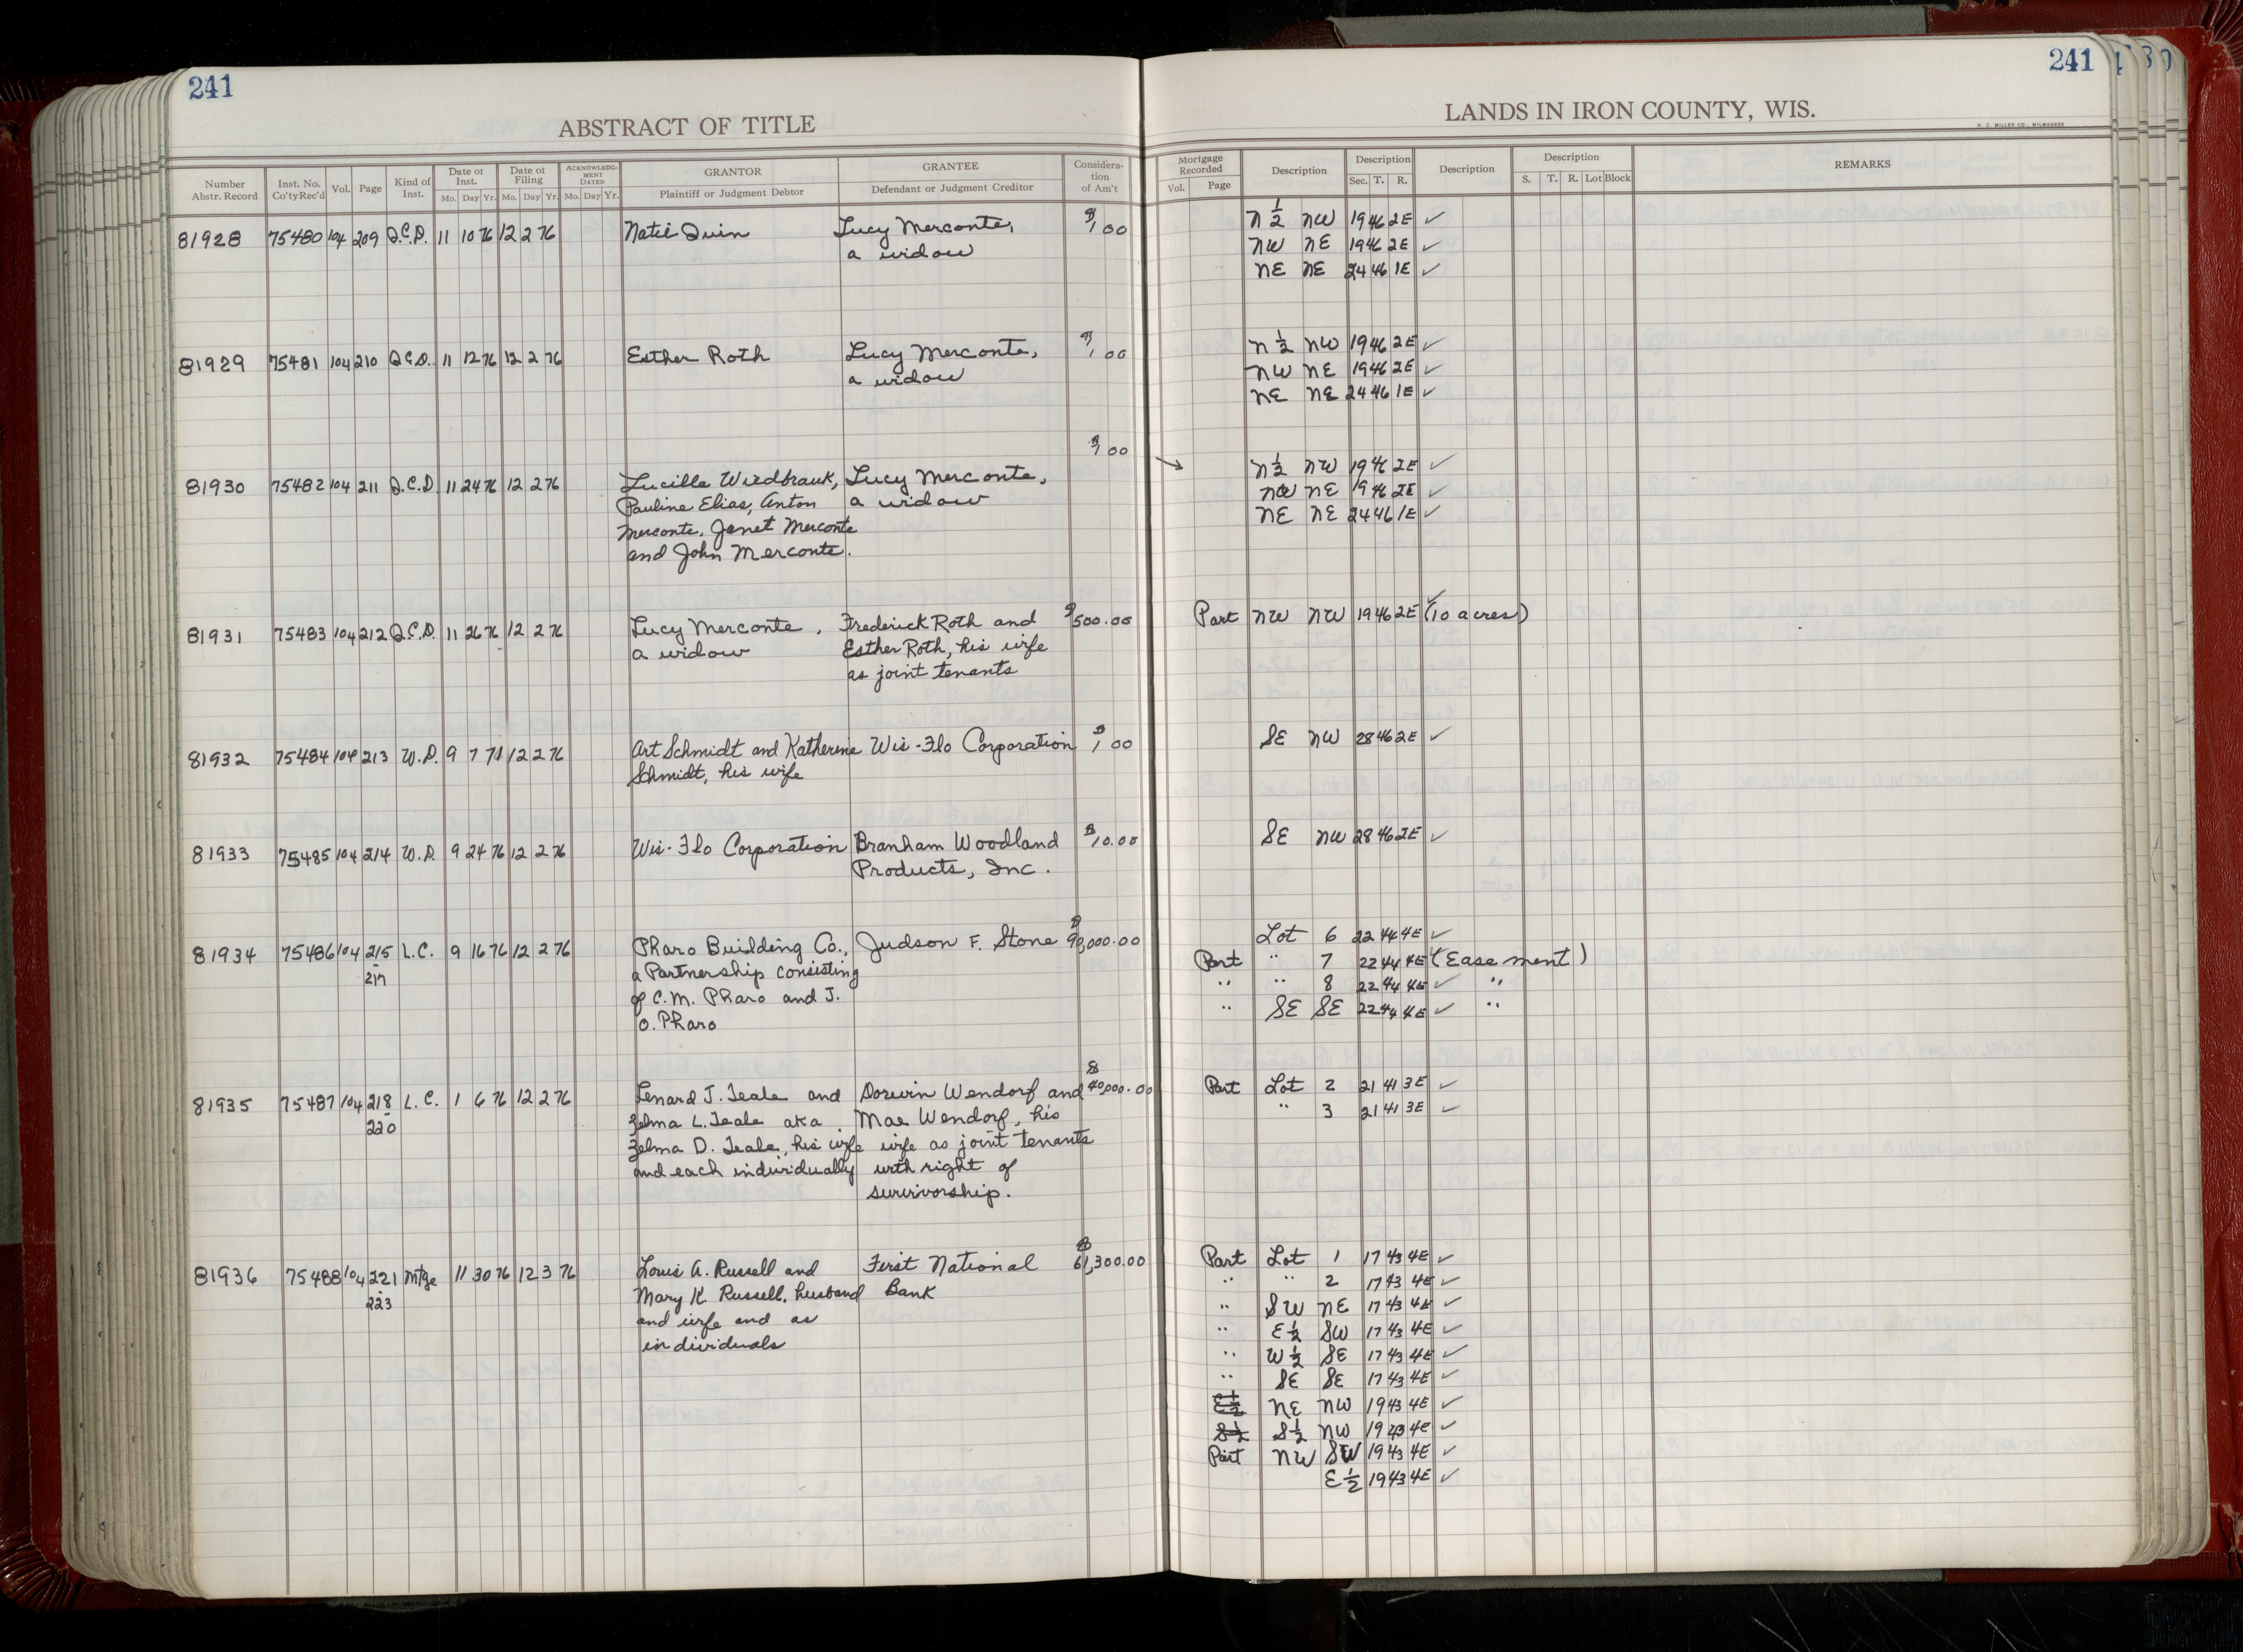 241
241
ABSTRACT OF TITLE
LANDS IN IRON COUNTY, WIS.
H. C. MILLER CO., MILWAUKEE
Number Abstr. Record | Inst. No. Co'ty Rec'd | Vol. | Page | Kind of Inst. | Date of Inst. Mo. Day Yr. | Date of Filing Mo. Day Yr. | ACKNOWLEDGMENT DATED Mo. Day Yr. | GRANTOR Plaintiff or Judgment Debtor | GRANTEE Defendant or Judgment Creditor | Consideration of Am't | Mortgage Recorded Vol. Page | Description | Description Sec. T. R. | Description | Description S. T. R. Lot Block | REMARKS
81928 75480 104 209 Q.C.D. 11 10 76 12 2 76 Lucy Merconte, $1 00 N 1/2 NW 19 46 2E ✓
a widow NW NE 19 46 2E ✓
NE NE 24 46 1E ✓
81929 75481 104 210 Q.C.D. 11 12 76 12 2 76 Esther Roth Lucy Merconte, $1 00 N 1/2 NW 19 46 2E ✓
a widow NW NE 19 46 2E ✓
NE NE 24 46 1E ✓
81930 75482 104 211 Q.C.D. 11 24 76 12 2 76 Lucille Lucy Merconte, $1 00 N 1/2 NW 19 46 2E ✓
Pauline Elias, Anton a widow NW NE 19 46 2E ✓
Merconte, Janet Merconte NE NE 24 46 1E ✓
and John Merconte.
81931 75483 104 212 Q.C.D. 11 26 76 12 2 76 Lucy Merconte, Frederick Roth and $500.00 Part NW NW 19 46 2E ✓ (10 acres)
a widow Esther Roth, his wife
as joint tenants
81932 75484 104 213 W.D. 9 7 71 12 2 76 Art Schmidt and Katherine Wis-Flo Corporation $1 00 SE NW 28 46 2E ✓
Schmidt, his wife
81933 75485 104 214 W.D. 9 24 76 12 2 76 Wis-Flo Corporation Branham Woodland $10.00 SE NW 28 46 2E ✓
Products, Inc.
81934 75486 104 215-217 L.C. 9 16 76 12 2 76 Pharo Building Co., Judson F. Stone $90,000.00 Lot 6 22 44 4E ✓
a Partnership consisting Part " 7 22 44 4E ✓ (Easement)
of C.M. Pharo and J. " " 8 22 44 4E ✓ "
O. Pharo " SE SE 22 44 4E ✓ "
81935 75487 104 218-220 L.C. 1 6 76 12 2 76 Lenard J. Teale and Dorwin Wendorf and $40,000.00 Part Lot 2 21 41 3E ✓
Zelma L. Teale aka Mae Wendorf, his " 3 21 41 3E ✓
Zelma D. Teale, his wife wife as joint tenants
and each individually with right of
survivorship.
81936 75488 104 221-223 Mtge 11 30 76 12 3 76 Louis A. Russell and First National $61,300.00 Part Lot 1 17 43 4E ✓
Mary K. Russell, husband Bank " " 2 17 43 4E ✓
and wife and as " SW NE 17 43 4E ✓
individuals " E 1/2 SW 17 43 4E ✓
" W 1/2 SE 17 43 4E ✓
" SE SE 17 43 4E ✓
E 1/2 NE NW 19 43 4E ✓
S 1/2 S 1/2 NW 19 43 4E ✓
Part NW SW 19 43 4E ✓
E 1/2 19 43 4E ✓